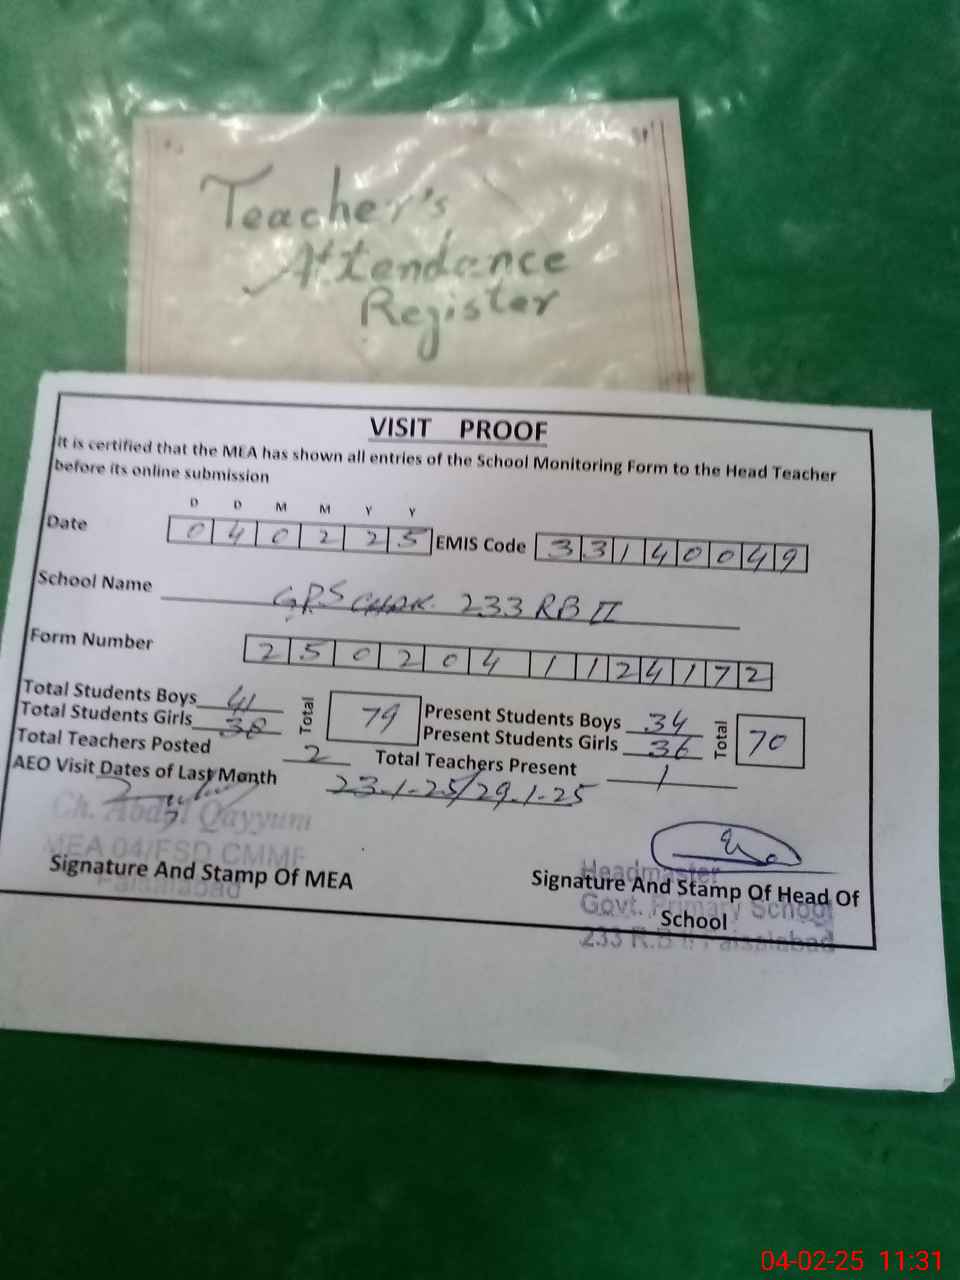 Teacher's
Attendance
Register
VISIT PROOF
It is certified that the MEA has shown all entries of the School Monitoring Form to the Head Teacher
before its online submission
D D M M Y Y
Date 0 4 0 2 2 5 EMIS Code 3 3 1 4 0 0 4 9
School Name GPS CHAK. 233 RB II
Form Number 2 5 0 2 0 4 1 1 2 4 1 7 2
Total Students Boys 41 Total 79 Present Students Boys 34 Total 70
Total Students Girls 38 Present Students Girls 36
Total Teachers Posted 2 Total Teachers Present 1
AEO Visit Dates of Last Month 23.1-25/29.1-25
Ch. Abdul Qayyum
MEA 04/FSD CMMF
Faisalabad
Signature And Stamp Of MEA
Headmaster
Signature And Stamp Of Head Of
Govt. Primary School
School
233 R.B II Faisalabad
04-02-25 11:31